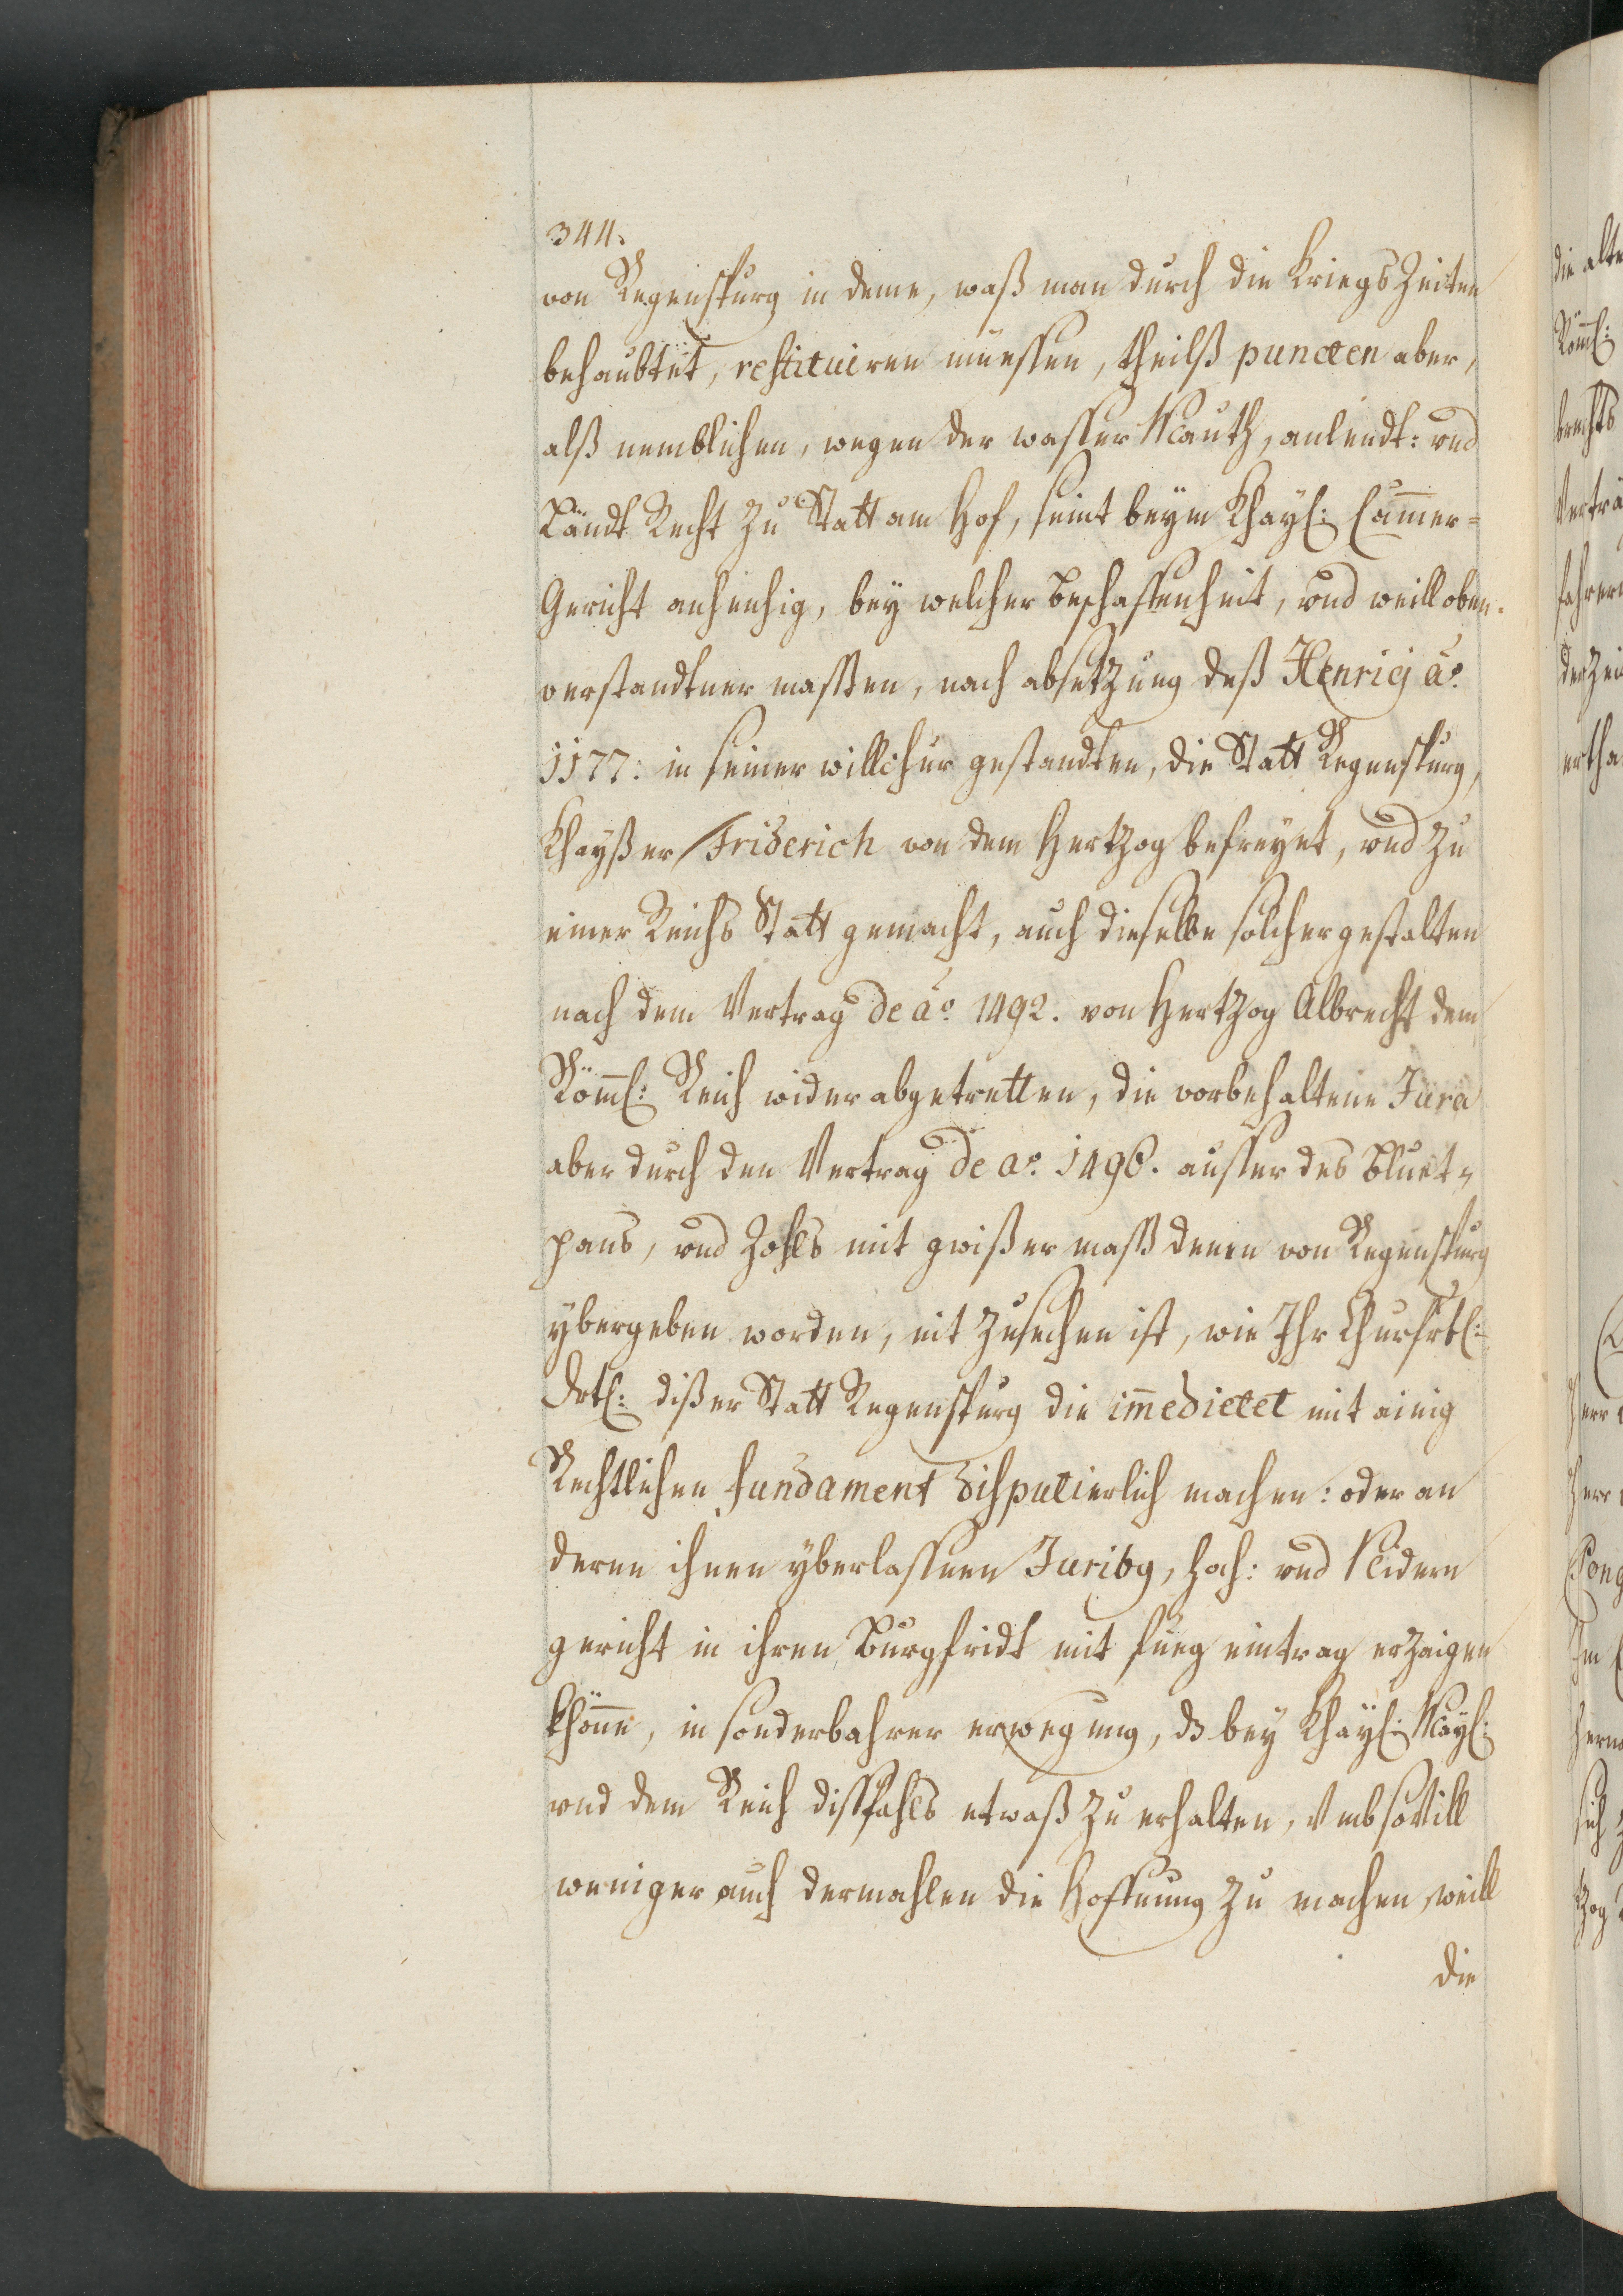 344.
von Regenspurg in deme, waß man durch die Kriegs Zeiten
behaubtet, restituiren müessen, theilß puncten aber,
alß nemblichen, wegen der wasser Mauth, anlendt: vnd
Ländt Recht zu Statt am Hof, seint beÿm Khaÿ: Cam̄er=
Gericht anhenhig, beÿ welcher beschaffenheit, vnd weill oben-
verstandtner massen, nach absetzung deß Henricj aō.
1177: in seiner willchur gestandten, die Statt Regenspurg,
Khaÿßer Friderich von dem Hertzog befreÿet, vnd zu
einer Reichs Statt gemacht, auch dieselbe solchergestalten
nach dem Vertrag de aō. 1492. von Hertzog Albrecht dem
Röml: Reich wider abgetretten, die vorbehaltene Jura
aber durch den Vertrag de ao. 1496. ausser des Bluet-
pans, vnd Zohls mit gwißer mass denen von Regenspurg
ÿbergeben worden, nit zusechen ist, wie Ihr Churfrtl:
Drtl: dißer Statt Regenspurg die im̄edietet mit ainig
Rechtlichen fundament disputierlich machen: oder an
deren ihnen ÿberlassnen Juribg, hoch: vnd Nidern
gericht in ihren Burgfridt mit fueg eintrag erzaigen
khönne, in sonderbahrer erwegung, dz beÿ Khaÿl: Maÿl:
vnd dem Reich dissfahls etwaß zu erhalten, Vmb sovill
weniger auch dermahlen die Hoffnung zu machen, weill
die
die alte
Röml:
brechts
Verträ
fahren
der Zei
ertha
Herr
Herr
Im
sich
tzog